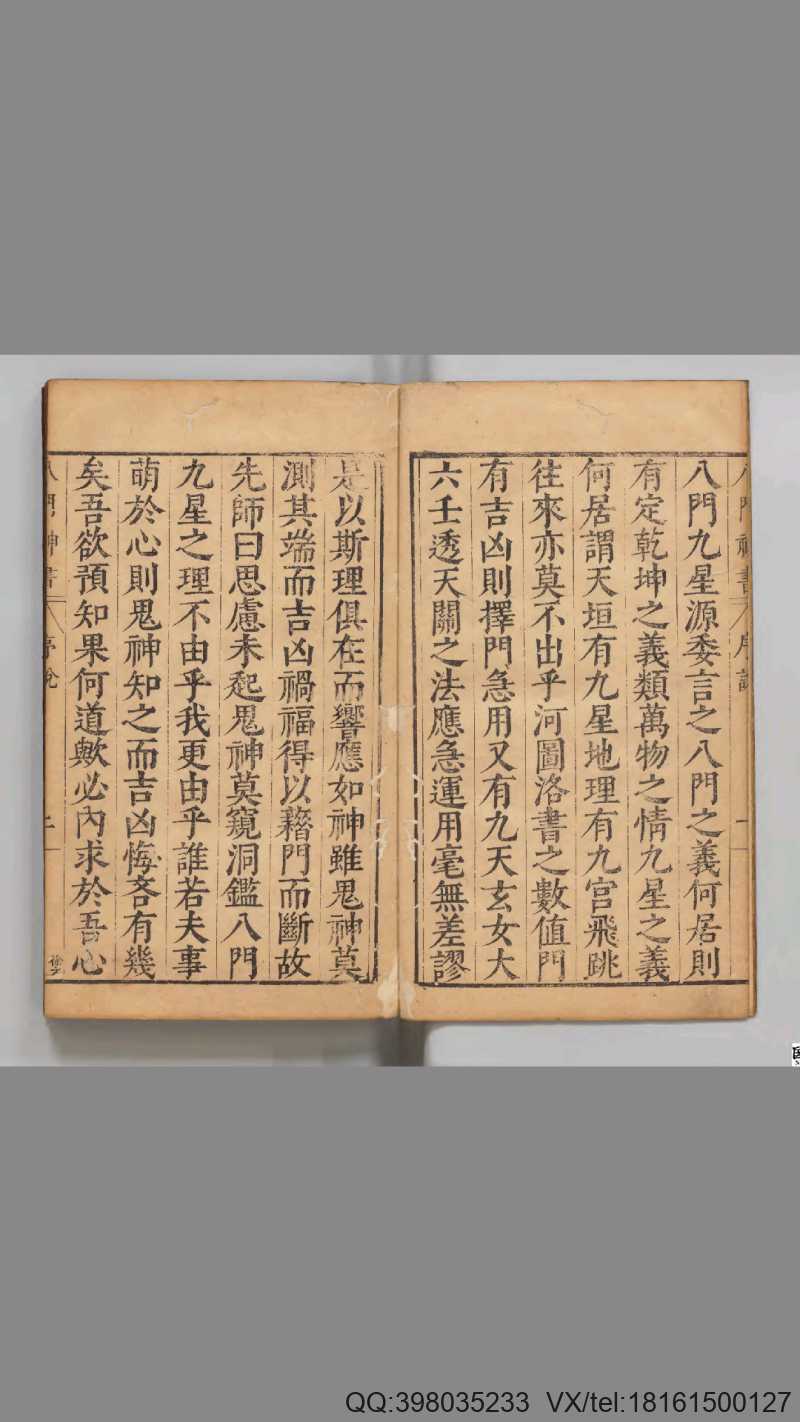 八門九星源委言之八門之義何居則
有定乾坤之義類萬物之情九星之義
何居謂天垣有九星地理有九宮飛跳
往來亦莫不出乎河圖洛書之數值門
有吉凶則擇門急用又有九天玄女大
六壬透天關之法應急運用毫無差謬
是以斯理俱在而響應如神雖鬼神莫
測其端而吉凶禍福得以藉門而斷故
先師曰思慮未起鬼神莫窺洞鑑八門
九星之理不由乎我更由乎誰若夫事
萌於心則鬼神知之而吉凶悔吝有幾
矣吾欲預知果何道歟必內求於吾心
八門神書 序說
QQ:398035233 VX/tel:18161500127